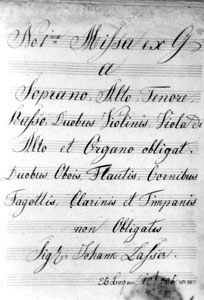 Missa ex G
a
Soprano Alto Tenore
Basso Duobus Violinis, Viola di
Alto et Organo obligat.
Duobus Obois, Flautis, Cornibus
Fagottis, Clarinis et Timpanis
non Obligatis
Sigre Johann Lasser.